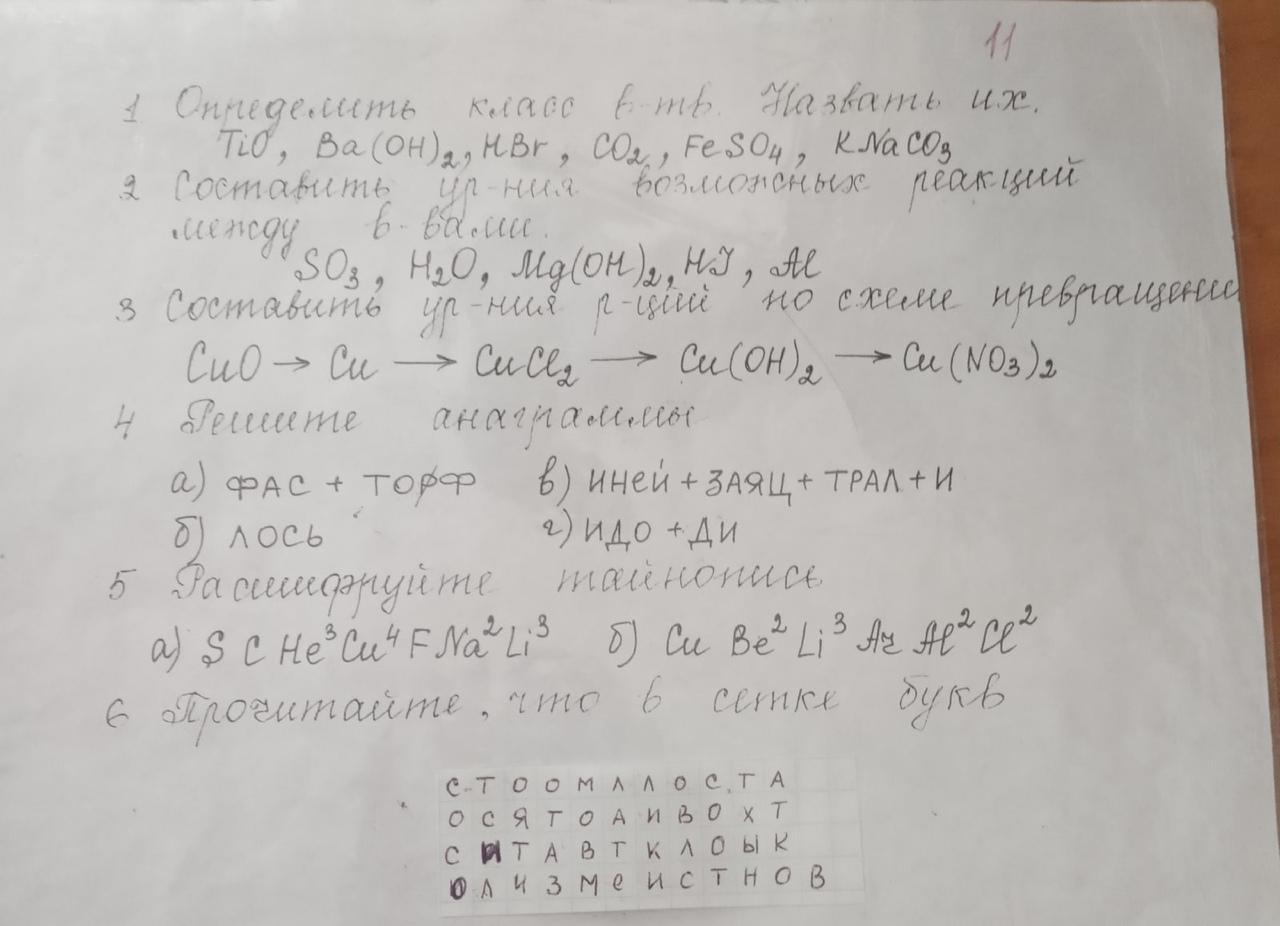 11
1 Определить класс в-тв. Назвать их.
TiO, Ba(OH)₂, HBr, CO₂, FeSO₄, KNaCO₃
2 Составить ур-ния возможных реакций
между в-вами.
SO₃, H₂O, Mg(OH)₂, HJ, Al
3 Составить ур-ния р-ций по схеме превращени
CuO → Cu → CuCl₂ → Cu(OH)₂ → Cu(NO₃)₂
4 Решите анаграммы
а) ФАС + ТОРФ в) ИНЕЙ + ЗАЯЦ + ТРАЛ + И
б) ЛОСЬ г) ИДО + ДИ
5 Расшифруйте тайнопись
а) S C He³ Cu⁴ F Na² Li³ б) Cu Be² Li³ Ar Al² Cl²
6 Прочитайте, что в сетке букв
С Т О О М Л Л О С Т А
О С Я Т О А И В О Х Т
С И Т А В Т К Л О Ы К
О Л И З М Е И С Т Н О В